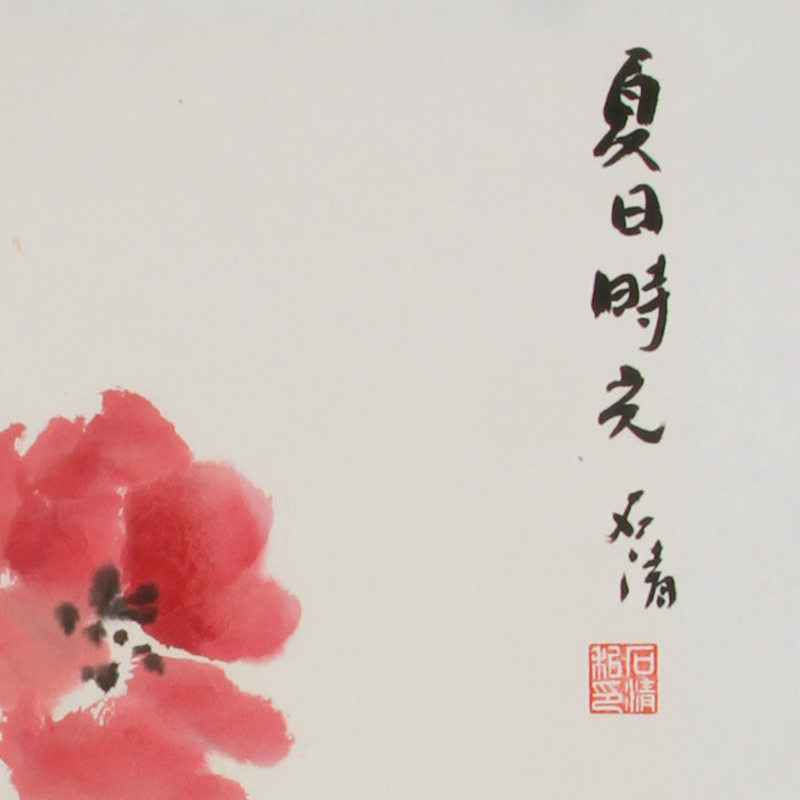 夏日時光
石清
石清